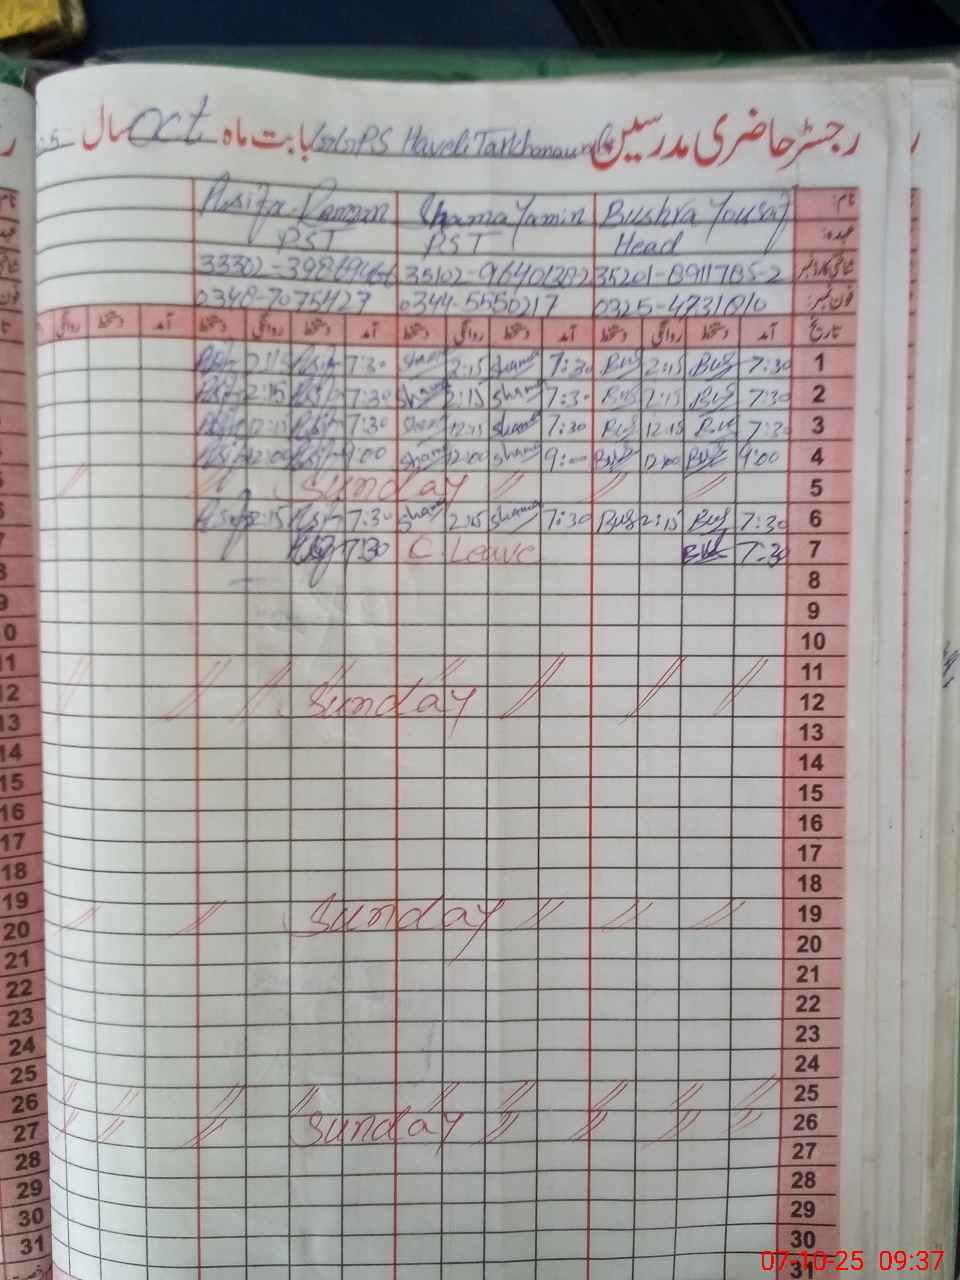 رجسٹر حاضری مدرسین PS Haveli Tarkhanawali بابت ماہ Oct سال
نام: Bushra Yousaf Shama Yamin Asifa Raman
عہدہ: Head PST PST
35201-8911785-2 35102-9640128-2
فون نمبر: 0325-4731810 0344-5550217 0348-7075427
تاریخ آمد دستخط روانگی دستخط آمد دستخط روانگی دستخط آمد دستخط روانگی دستخط آمد دستخط روانگی
1 7:30 Bus 2:15 Bus 7:30 Shama 2:15 Shama 7:30 Asif 2:15 Asif
2 7:30 Bus 2:15 Bus 7:30 Shama 2:15 Shama 7:30 Asif 2:15 Asif
3 7:30 Bus 12:15 Bus 7:30 Shama 12:15 Shama 7:30 Asif 12:15 Asif
4 9:00 Bus 12:00 Bus 9:00 Shama 12:00 Shama 9:00 Asif 12:00 Asif
5 Sunday
6 7:30 Bus 2:15 Bus 7:30 Shama 2:15 Shama 7:30 Asif 2:15 Asif
7 7:30 Bus C. Leave 7:30 Asif
8
9
10
11
12 Sunday
13
14
15
16
17
18
19 Sunday
20
21
22
23
24
25
26 Sunday
27
28
29
30
31
07-10-25 09:37